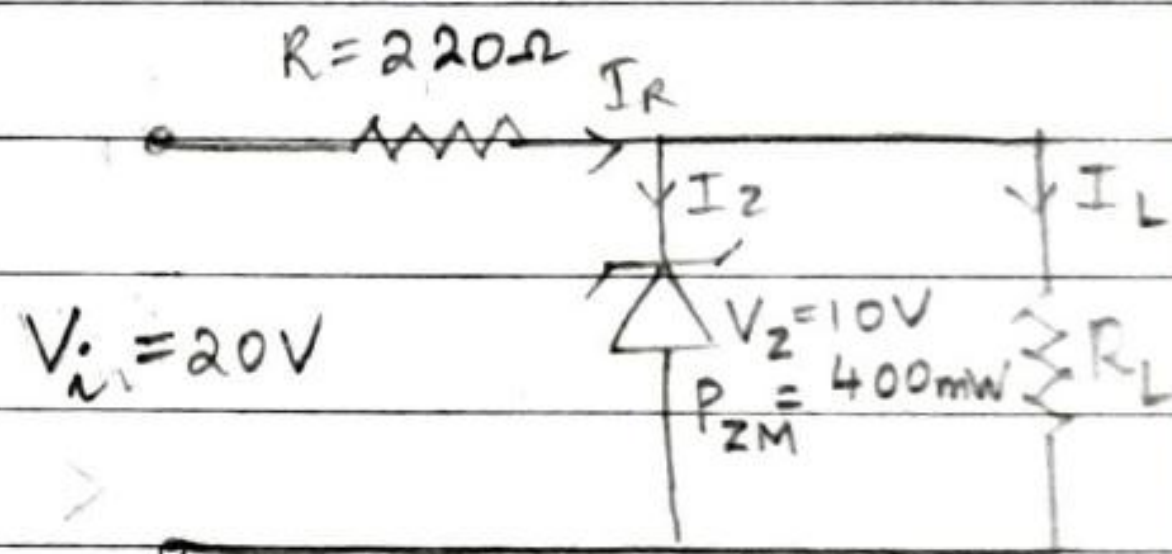 R=220Ω
I_R
I_Z
I_L
V_i=20V
V_Z=10V
P_ZM=400mW
R_L